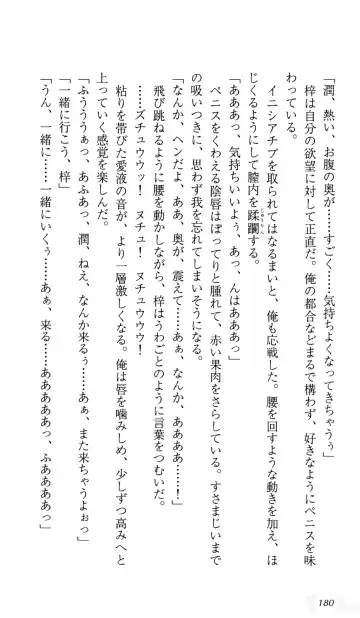 「潤、熱い、お腹の奥が……すごく……気持ちよくなってきちゃうぅ」
梓は自分の欲望に対して正直だ。俺の都合などまるで構わず、好きなようにペニスを味
わっている。
イニシアチブを取られてはなるまいと、俺も応戦した。腰を回すような動きを加え、ほ
じくるようにして膣内を蹂躙する。
「あああっ、気持ちいいよぅ、あっ、んはあああっ」
ペニスをくわえる陰唇はぽってりと腫れて、赤い果肉をさらしている。すさまじいまで
の吸いつきに、思わず我を忘れてしまいそうになる。
「なんか、ヘンだよ、ああ、奥が、震えて……あぁ、なんか、ああああ……！」
飛び跳ねるように腰を動かしながら、梓はうわごとのように言葉をつむいだ。
……ズチュウウッ！　ヌチュ！　ヌチュウウウ！
粘りを帯びた愛液の音が、より一層激しくなる。俺は唇を噛みしめ、少しずつ高みへと
上っていく感覚を楽しんだ。
「ふううぅぁっ、あふあっ、潤、ねえ、なんか来るぅ……あぁ、また来ちゃうよぉっ」
「一緒に行こう、梓」
「うん、一緒に……一緒にいくぅ……あぁ、来る……あああああっ、ふああああっ」
180